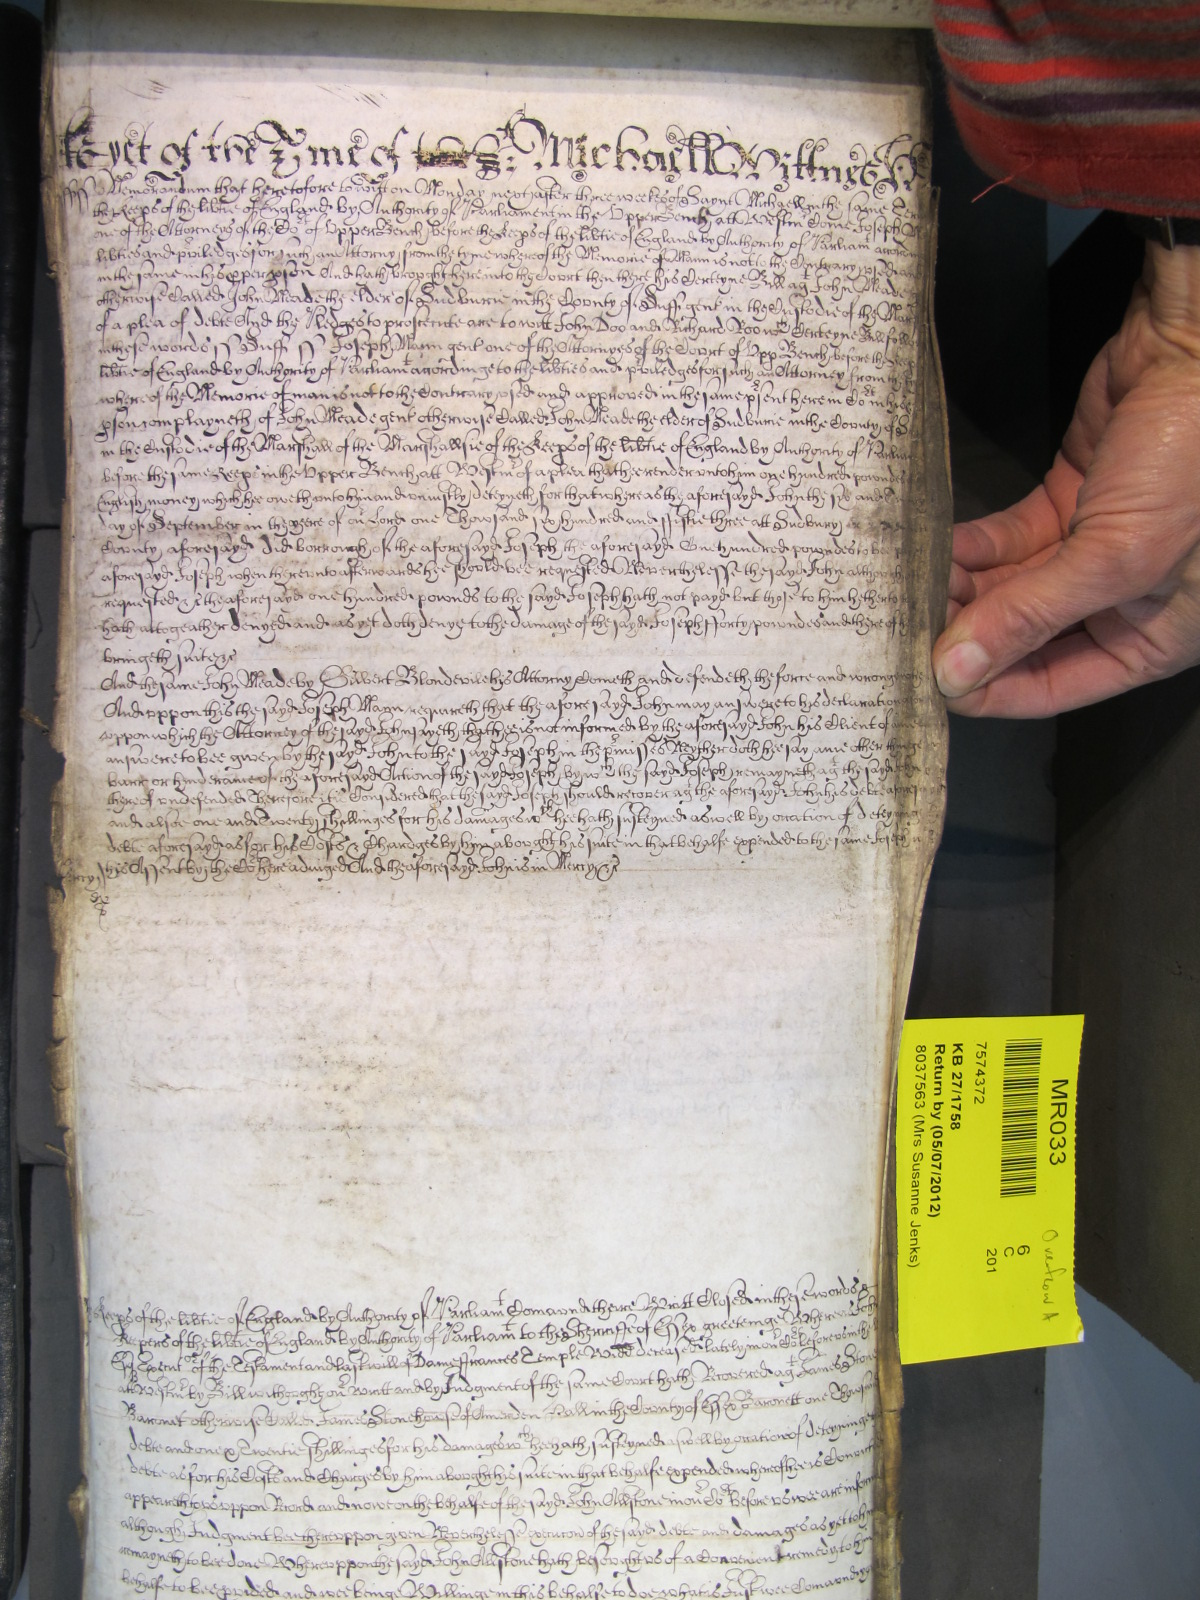 As yet of the Tyme of Michaell Wittnes
Memorandum that heretofore to witt on Monday next after three weekes of Saynt Michaell in the same Ter
the Keeps of the libtie of England by Authority of Parliament in the Upper Bench att Westm Came Joseph
one of the Attorneys of the Cot of Upper Bench before the Keeps of the libtie of England by Authority of Parliam accord
libties and priviledges for such an Attorny from the tyme whereof the Memorie of Man is not to the Contrary used and
in the same in his pper pson And hath brought here into the Court then there his Certeyne Bill agt John Meade
otherwise Called John Meade the elder of Sudburie in the County of Suff gent in the Custodie of the Mar
of a plea of debte And the Pledges to prosecute are to witt John Doo and Richard Roo wch Certeyne Bill follo
in these words ss Suff ss Joseph Mann gent one of the Attornyes of the Court of Upp Bench before the Keep
libtie of England by Authority of Parliamt accordinge to the libties and priviledges for such an Attorney from the
whereof the Memorie of man is not to the Contrary used and approved in the same psent here in Cort in his
pson complayneth of John Meade gent otherwise Called John Meade the elder of Sudburie in the County of S
in the Custodie of the Marshall of the Marshallsie of the Keeps of the libtie of England by Authority of Parliam
before the same Keeps in the Upper Bench att Westm of a plea that hee render unto him one hundred powndes
English money which hee oweth unto him and uniustly deteyneth for that whereas the aforesayd John the six and
day of September in the yeere of our Lord one Thowsand six hundred and fiftie three att Sudbury
County aforesayd did borrow of the aforesayd Joseph the aforesayd One hundred powndes to bee
aforesayd Joseph when thereunto afterwards hee should bee requested Neverthelesse the sayd John although
requested &c the aforesayd one hundred pownds to the sayd Joseph hath not payd but those to him hetherto
hath altogeather denyed and as yet doth denye to the damage of the sayd Joseph fforty powndes and thereof he
bringeth suite &c
And the same John Meade by Gilbert Blondevile his Attorny Cometh and defendeth the force and wronge when
And uppon this the sayd Joseph Mann requireth that the aforesayd John may answere to his declaration
uppon which the Attorney of the sayd John sayeth that hee is not informed by the aforesayd John his Client of any
answere to bee given by the sayd John to the sayd Joseph in the pmisses Neyther doth hee say anie other thinge
barr or hinderance of the aforesayd Action of the sayd Joseph by wch the sayd Joseph remayneth agt the sayd John
thereof undefended Therefore it is Considered that the sayd Joseph should recover agt the aforesayd John his debte afores
and alsoe one and Twenty shillinges for his damages wch hee hath susteyned aswell by occation of deteyning
debte aforesayd as for his Costs & Chardges by him about his suite in that behalfe expended to the same Joseph
his Assent by the Cort here adiudged And the aforesayd John is in Mercy &c
Keeps of the libtie of England by Authority of Parliamt Comaund there Writt Closed in these words
Keepers of the libtie of England by Authority of Parliamt to the Sherriffe of Essex greetinge Whereas John
Executor of the Testament and last will of Dame Frances Temple Widd deceased lately in our Cort before us
att Westm by Bill without our writt and by Judgment of the same Court hath Recovered agt James Stone
Baronet otherwise Called James Stonehouse of Amerden Hall in the County of Essex Baronett one Thowsand
debte and one & Twentie shillinges for his damages wch hee hath susteyned aswell by occation of deteyninge
debte as for his Costs and Charges by him about his suite in that behalfe expended whereof hee is Convicte
appeareth to us uppon Record and nowe on the behalfe of the sayd John Allstone in our Cort before us wee are inform
although Judgment bee thereuppon given Neverthelesse execucon of the sayd debte and damages as yet to him
remayneth to bee done Whereuppon the sayd John Allstone hath besought us of a Convenient remedy to him
behalfe to bee provided and wee beinge Willinge in this behalfe to doe what is Just wee Comaund you
MR033
7574372
KB 27/1758
Return by (05/07/2012)
8037563 (Mrs Susanne Jenks)
6
C
201
Overflow A